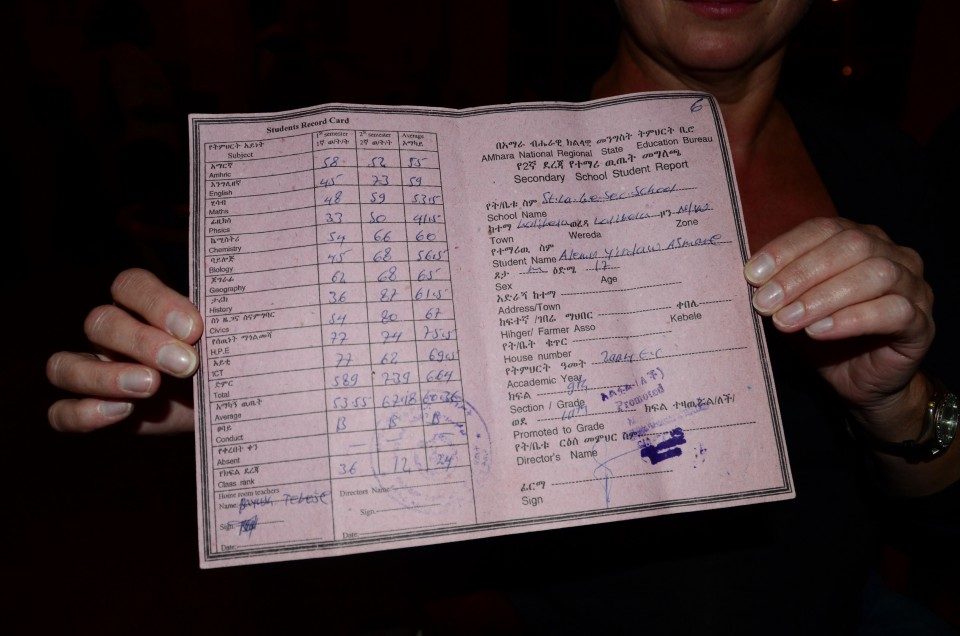 Students Record Card
የትምህርት አይነት
Subject
1st semester
1ኛ ወ/ት/ት
2nd semester
2ኛ ወ/ት/ት
Average
አማካይ
አማርኛ
Amhric 58 52 55
እንግሊዘኛ
English 45 73 59
ሂሳብ
Maths 48 59 53.5
ፊዚክስ
Phsics 33 50 41.5
ኬሚስትሪ
Chemistry 54 66 60
ባይሎጅ
Biology 45 68 56.5
ጆግራፊ
Geography 62 68 65
ታሪክ
History 36 87 61.5
ስነ ዜጋና ስናምግባር
Civics 54 80 67
የሰዉነት ማጎልመሻ
H.P.E 77 74 75.5
አይቲ
ICT 77 62 69.5
ድምር
Total 589 739 664
አማካኝ ዉጤት
Average 53.55
ፀባይ
Conduct B B
የቀረበት ቀን
Absent
የክፍል ደረጃ
Class rank 36 12 24
Home room teachers
Name
Sign.
Date:
Directors Name
Sign.
Date:
6
በአማራ ብሔራዊ ክልላዊ መንግስት ትምህርት ቢሮ
AMhara National Regional State Education Bureau
የ2ኛ ደረጃ የተማሪ ዉጤት መግለጫ
Secondary School Student Report
የት/ቤቱ ስም St. La. Ge. Sec. School
School Name
ከተማ Lalibela ወረዳ Lalibela ዞን N/W
Town Wereda Zone
የተማሪዉ ስም
Student Name
ጾታ ዕድሜ 17
Sex Age
አድራሻ ከተማ
Address/Town
ከፍተኛ /ገበሬ ማህበር ቀበሌ
Hihger/ Farmer Asso Kebele
የት/ቤት ቁጥር
House number
የትምህርት ዓመት E.C
Accademic Year
ክፍል 9th
Section / Grade
ወደ 10th ክፍል ተዛዉሯል/ለች/
Promoted
Promoted to Grade
የት/ቤቱ ርዕሰ መምህር ስም
Director's Name
ፊርማ
Sign